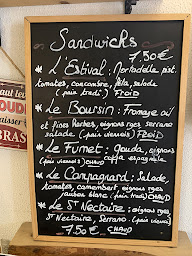 Sandwichs
7.50€
* L'Estival: Mortadelle pist.
tomates, concombre, feta, salade
(pain tradi.) FROID
* Le Boursin: Fromage ail
et fines herbes, oignons roges serrano
salade (pain viennois) FROID
* Le Fumet: Gouda, oignons
(pain viennois) CHAUD coffa espagnole
* Le Campagnard: Salade,
tomates, camembert, oignons roges
jambon blanc (pain tradi) CHAUD
* Le St Nectaire: oignons roges,
St Nectaire, Serrano. (pain viennois)
7.50€ CHAUD
aut leu
OUDI
aisser
BRAS